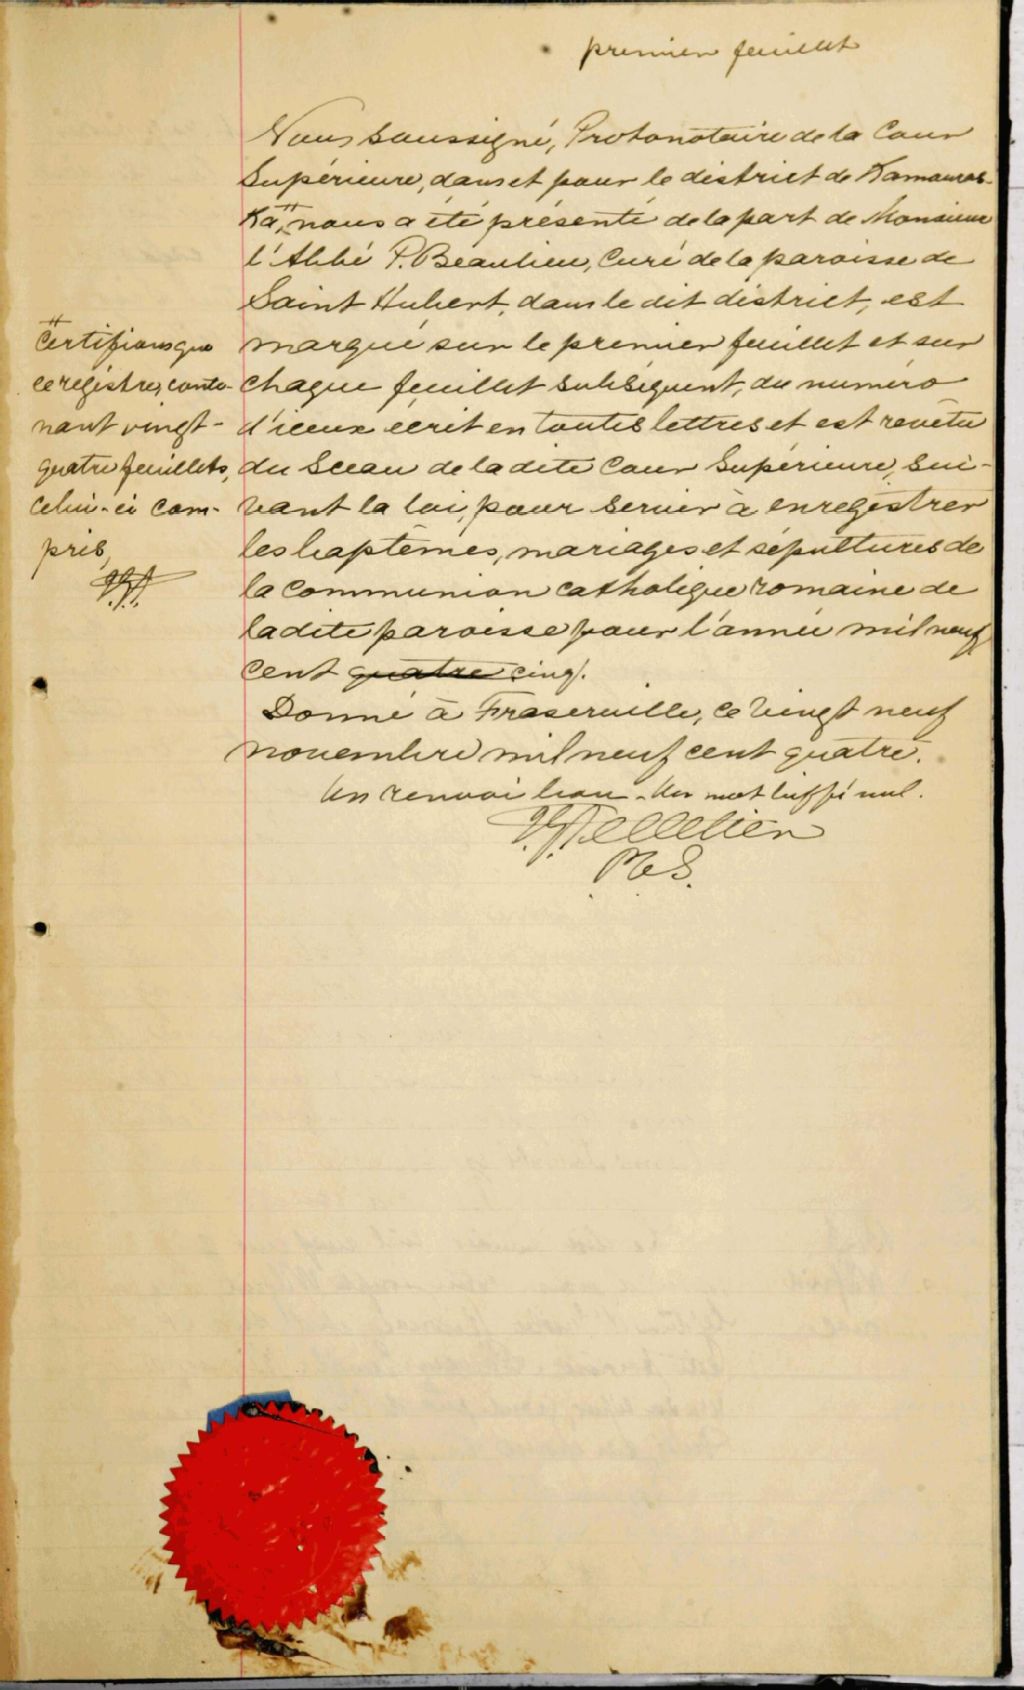 premier feuillet
Nous soussigné, Protonotaire de la Cour
Supérieure, dans et pour le district de Kamouras-
Ka,# nous a été présenté de la part de Monsieur
l'Abbé P. Beaulieu, Curé de la paroisse de
Saint Hubert, dans le dit district, est
marqué sur le premier feuillet et sur
chaque feuillet subséquent, du numéro
d'iceux écrit en toutes lettres et est revêtu
du Sceau de la dite Cour Supérieure, sui-
vant la loi, pour servir à enregistrer
les baptêmes, mariages et sépultures de
la communion catholique romaine de
la dite paroisse pour l'année mil neuf
cent quatre cinq.
Donné à Fraserville, ce vingt neuf
novembre mil neuf cent quatre.
Un renvoi bon - Un mot biffé nul.
Pelletier
P.C.S.
#
Certifions que
ce régistre, conte-
nant vingt-
quatre feuillets,
celui-ci com-
pris,